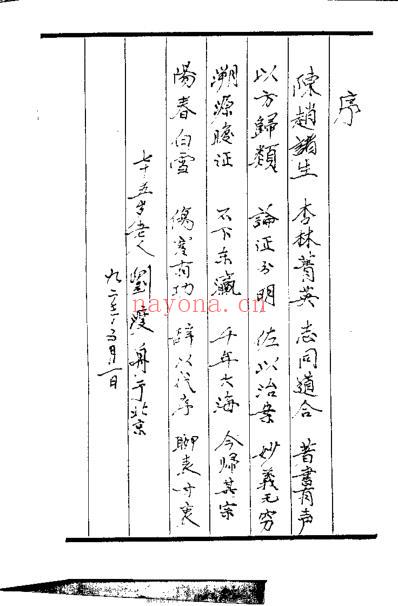 序
陳趙諸生 杏林菁英 志同道合 著書有声
以方歸類 論证分明 佐以治案 妙義无穷
溯源腹证 不下东瀛 千年 海 今归其宗
陽春白雪 傷寒有功 辞以代序 聊表寸衷
七十五岁老人 劉渡舟于北京
九二 月一日
nayona.cn